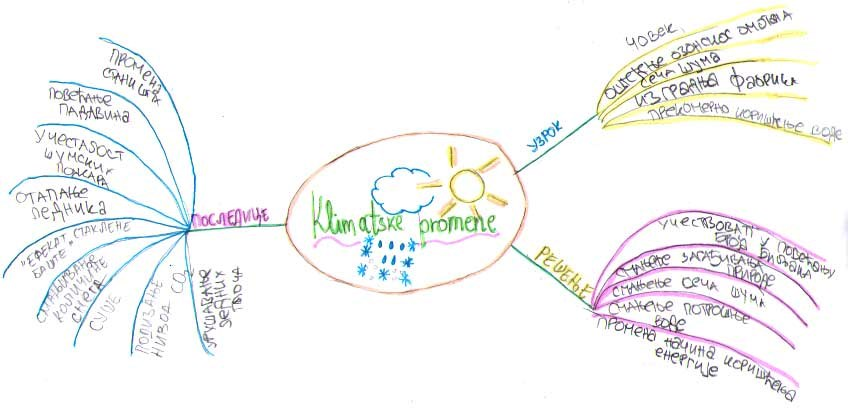 Klimatske promene
УЗРОК
ЧОВЕК
ОШТЕЋЕЊЕ ОЗОНСКОГ ОМОТАЧА
СЕЧА ШУМА
ИЗГРАДЊА ФАБРИКА
ПРЕКОМЕРНО КОРИШЋЕЊЕ ВОДЕ
РЕШЕЊЕ
УЧЕСТВОВАТИ У ПОВЕЋАЊУ
БРОЈА БИЉАКА
СМАЊЕЊЕ ЗАГАЂИВАЊА
ПРИРОДЕ
СМАЊЕЊЕ СЕЧА ШУМА
СМАЊЕЊЕ ПОТРОШЊЕ
ВОДЕ
ПРОМЕНА НАЧИНА КОРИШЋЕЊА
ЕНЕРГИЈЕ
ПОСЛЕДИЦЕ
ПРОМЕНА
СТАНИШТА
ПОВЕЋАЊЕ
ПАДАВИНА
УЧЕСТАЛОСТ
ШУМСКИХ
ПОЖАРА
ОТАПАЊЕ
ЛЕДНИКА
"ЕФЕКАТ СТАКЛЕНЕ
БАШТЕ"
КОЛИЧИНЕ
СНЕГА
СУШЕ
НИВОА CO₂
УРУШАВАЊЕ